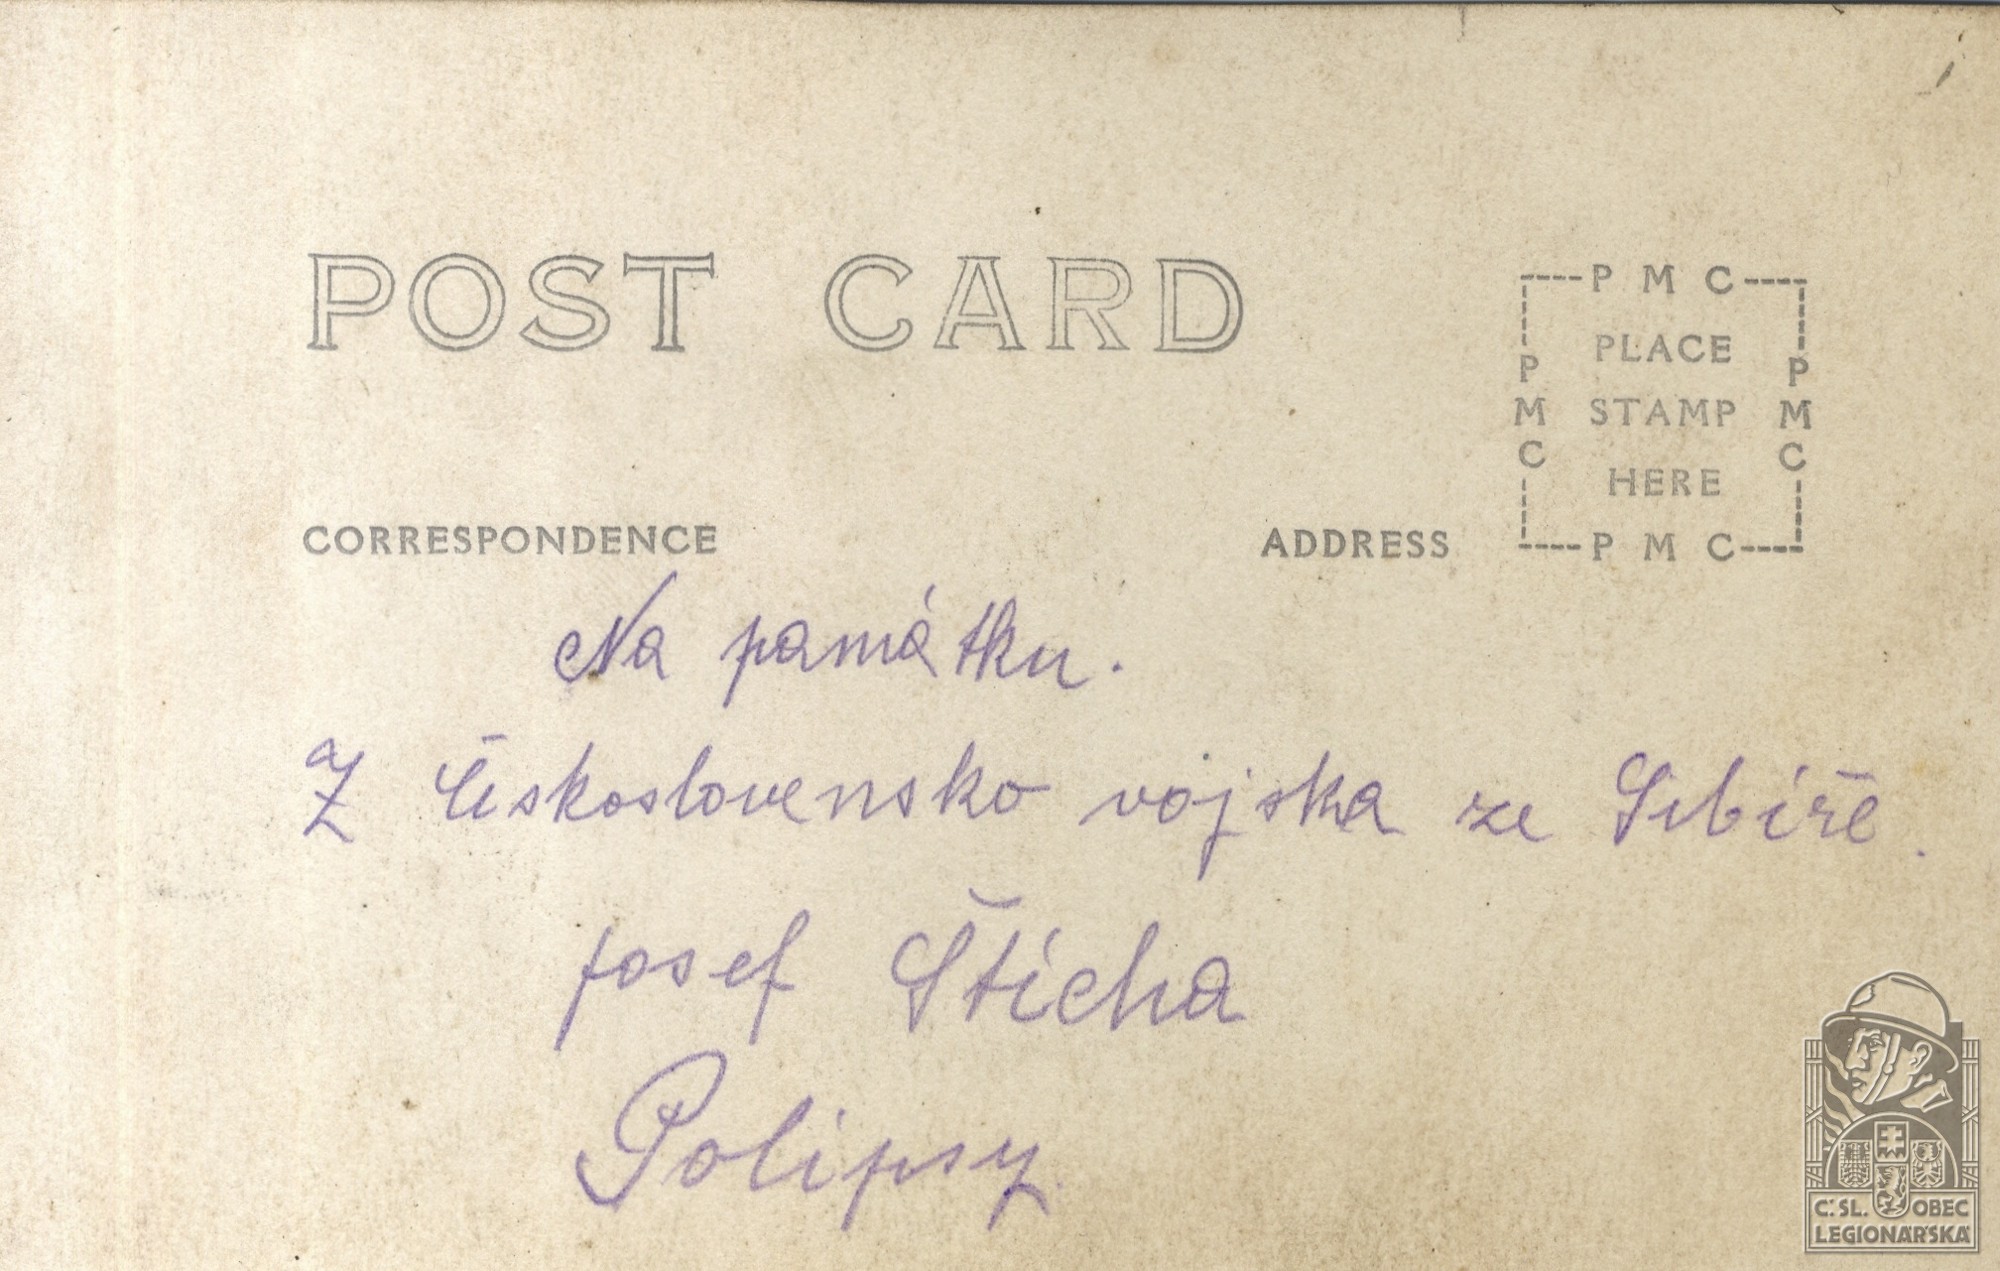 POST CARD
P M C
PLACE
STAMP
HERE
P M C
P M C
P M C
CORRESPONDENCE
ADDRESS
Na památku.
Z Československo vojska ze Sibíře.
Josef Štícha
Polipsy.
Č.SL. OBEC
LEGIONÁŘSKÁ